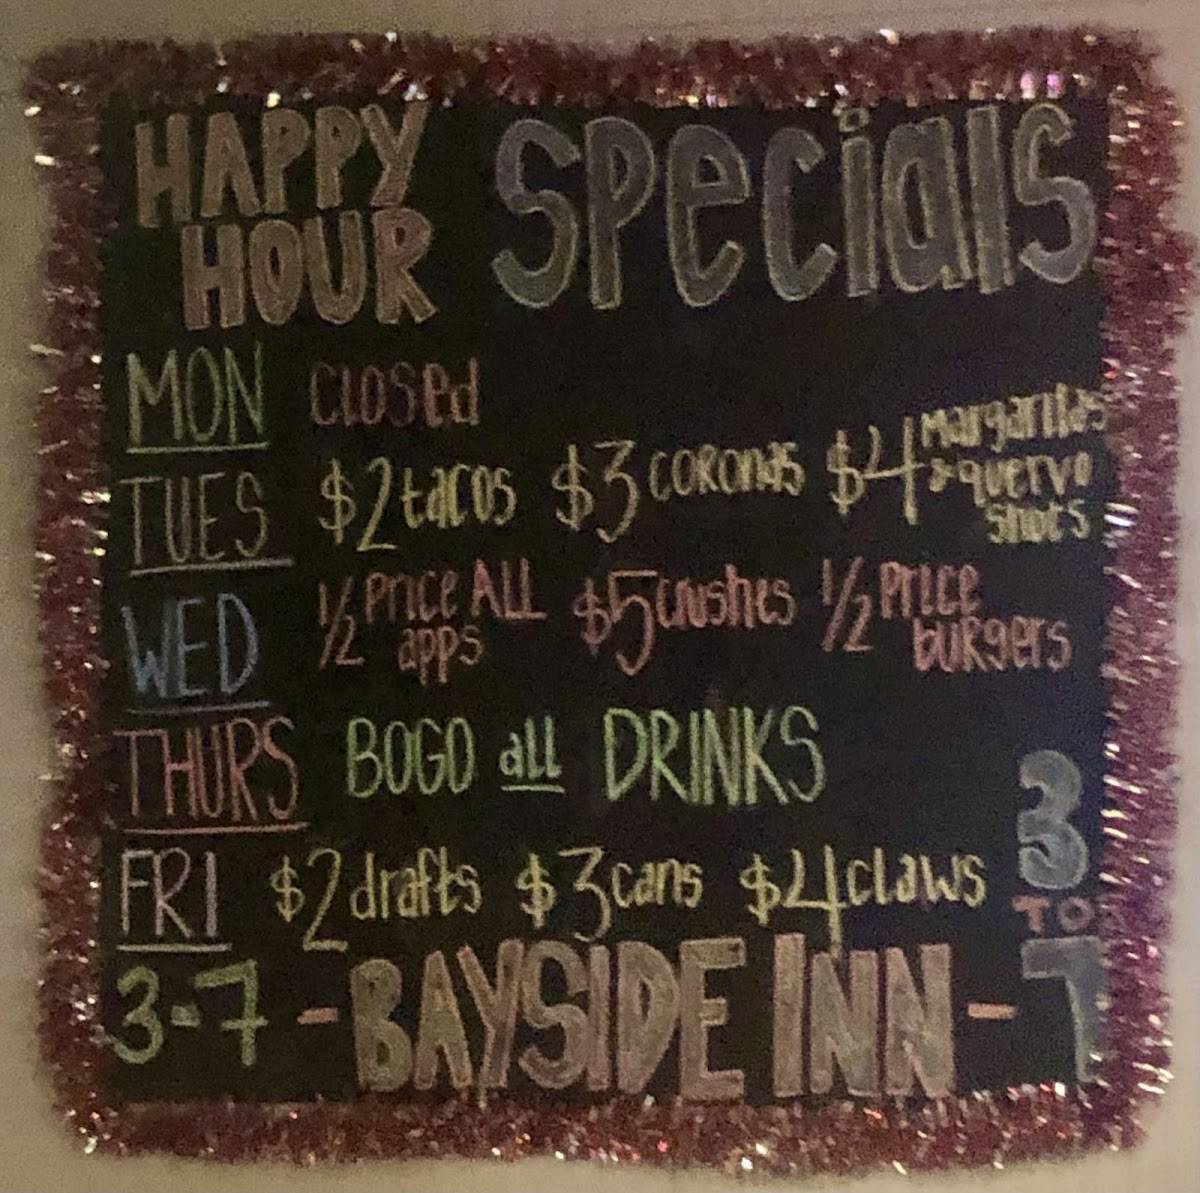 HAPPY HOUR Specials
MON Closed
TUES $2 tacos $3 CORONAS $4 Margaritas & quervo shots
WED 1/2 Price ALL apps $5 crushes 1/2 Price burgers
THURS BOGO all DRINKS
FRI $2 drafts $3 cans $4 claws
3-7 - BAYSIDE INN -
3 TO 7